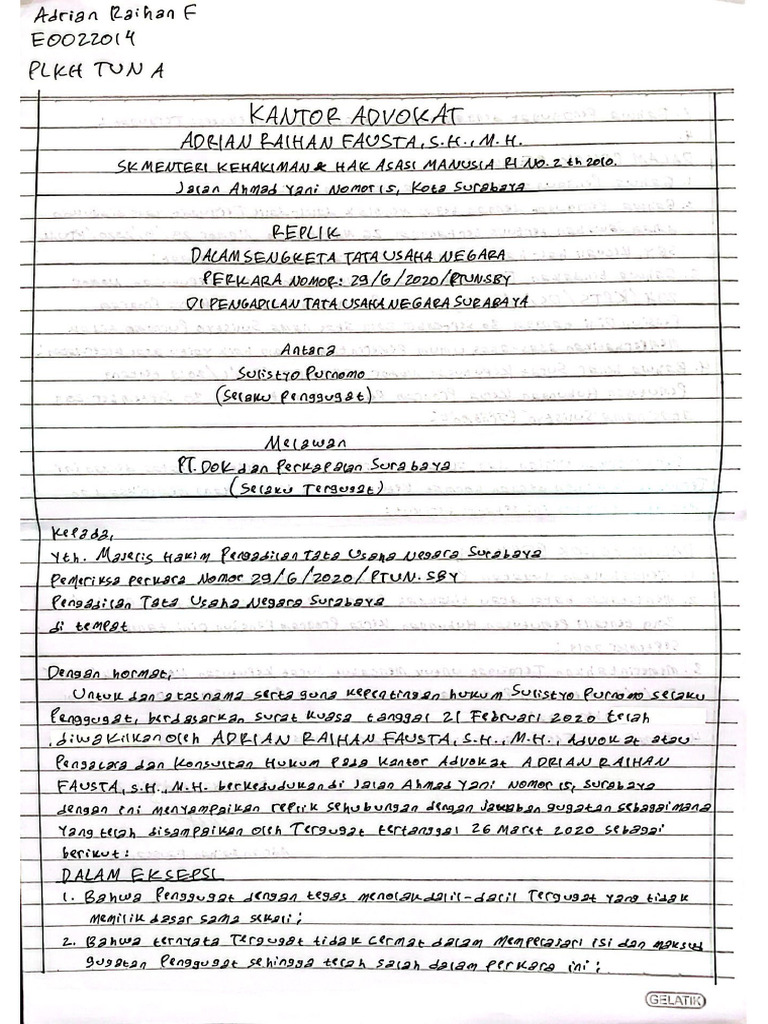 Adrian Raihan F
E0022014
PLKH TUN A
KANTOR ADVOKAT
ADRIAN RAIHAN FAUSTA, S.H., M.H.
SK MENTERI KEHAKIMAN & HAK ASASI MANUSIA RI NO. 2 th 2010.
Jalan Ahmad Yani Nomor 15, Kota Surabaya
REPLIK
DALAM SENGKETA TATA USAHA NEGARA
PERKARA NOMOR: 29/G/2020/PTUNSBY
DI PENGADILAN TATA USAHA NEGARA SURABAYA
Antara
Sulistyo Purnomo
(Selaku Penggugat)
Melawan
PT. DOK dan Perkapalan Surabaya
(Selaku Tergugat)
Kepada,
Yth. Majelis Hakim Pengadilan Tata Usaha Negara Surabaya
Pemeriksa perkara Nomor 29/G/2020/PTUN.SBY
Pengadilan Tata Usaha Negara Surabaya
di tempat
Dengan hormat,
Untuk dan atas nama serta guna kepentingan hukum Sulistyo Purnomo selaku
Penggugat, berdasarkan surat kuasa tanggal 21 Februari 2020 telah
diwakilkan oleh ADRIAN RAIHAN FAUSTA, S.H., M.H., Advokat atau
Pengacara dan Konsultan Hukum pada Kantor Advokat ADRIAN RAIHAN
FAUSTA, S.H., M.H. berkedudukan di Jalan Ahmad Yani Nomor 15, Surabaya
dengan ini menyampaikan replik sehubungan dengan Jawaban gugatan sebagaimana
yang telah disampaikan oleh Tergugat tertanggal 26 Maret 2020 sebagai
berikut:
DALAM EKSEPSI
1. Bahwa Penggugat dengan tegas menolak dalil-dalil Tergugat yang tidak
memilik dasar sama sekali;
2. Bahwa ternyata Tergugat tidak cermat dalam mempelajari isi dan maksud
gugatan Penggugat sehingga telah salah dalam perkara ini;
GELATIK